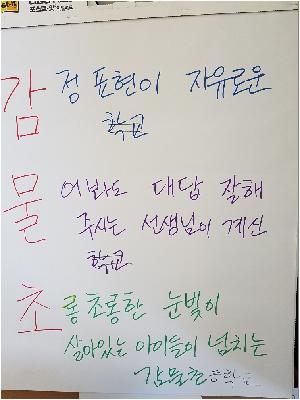 감정 표현이 자유로운
학교
물어봐도 대답 잘해
주시는 선생님이 계신
학교
초롱초롱한 눈빛이
살아있는 아이들이 넘치는
감물초등학교